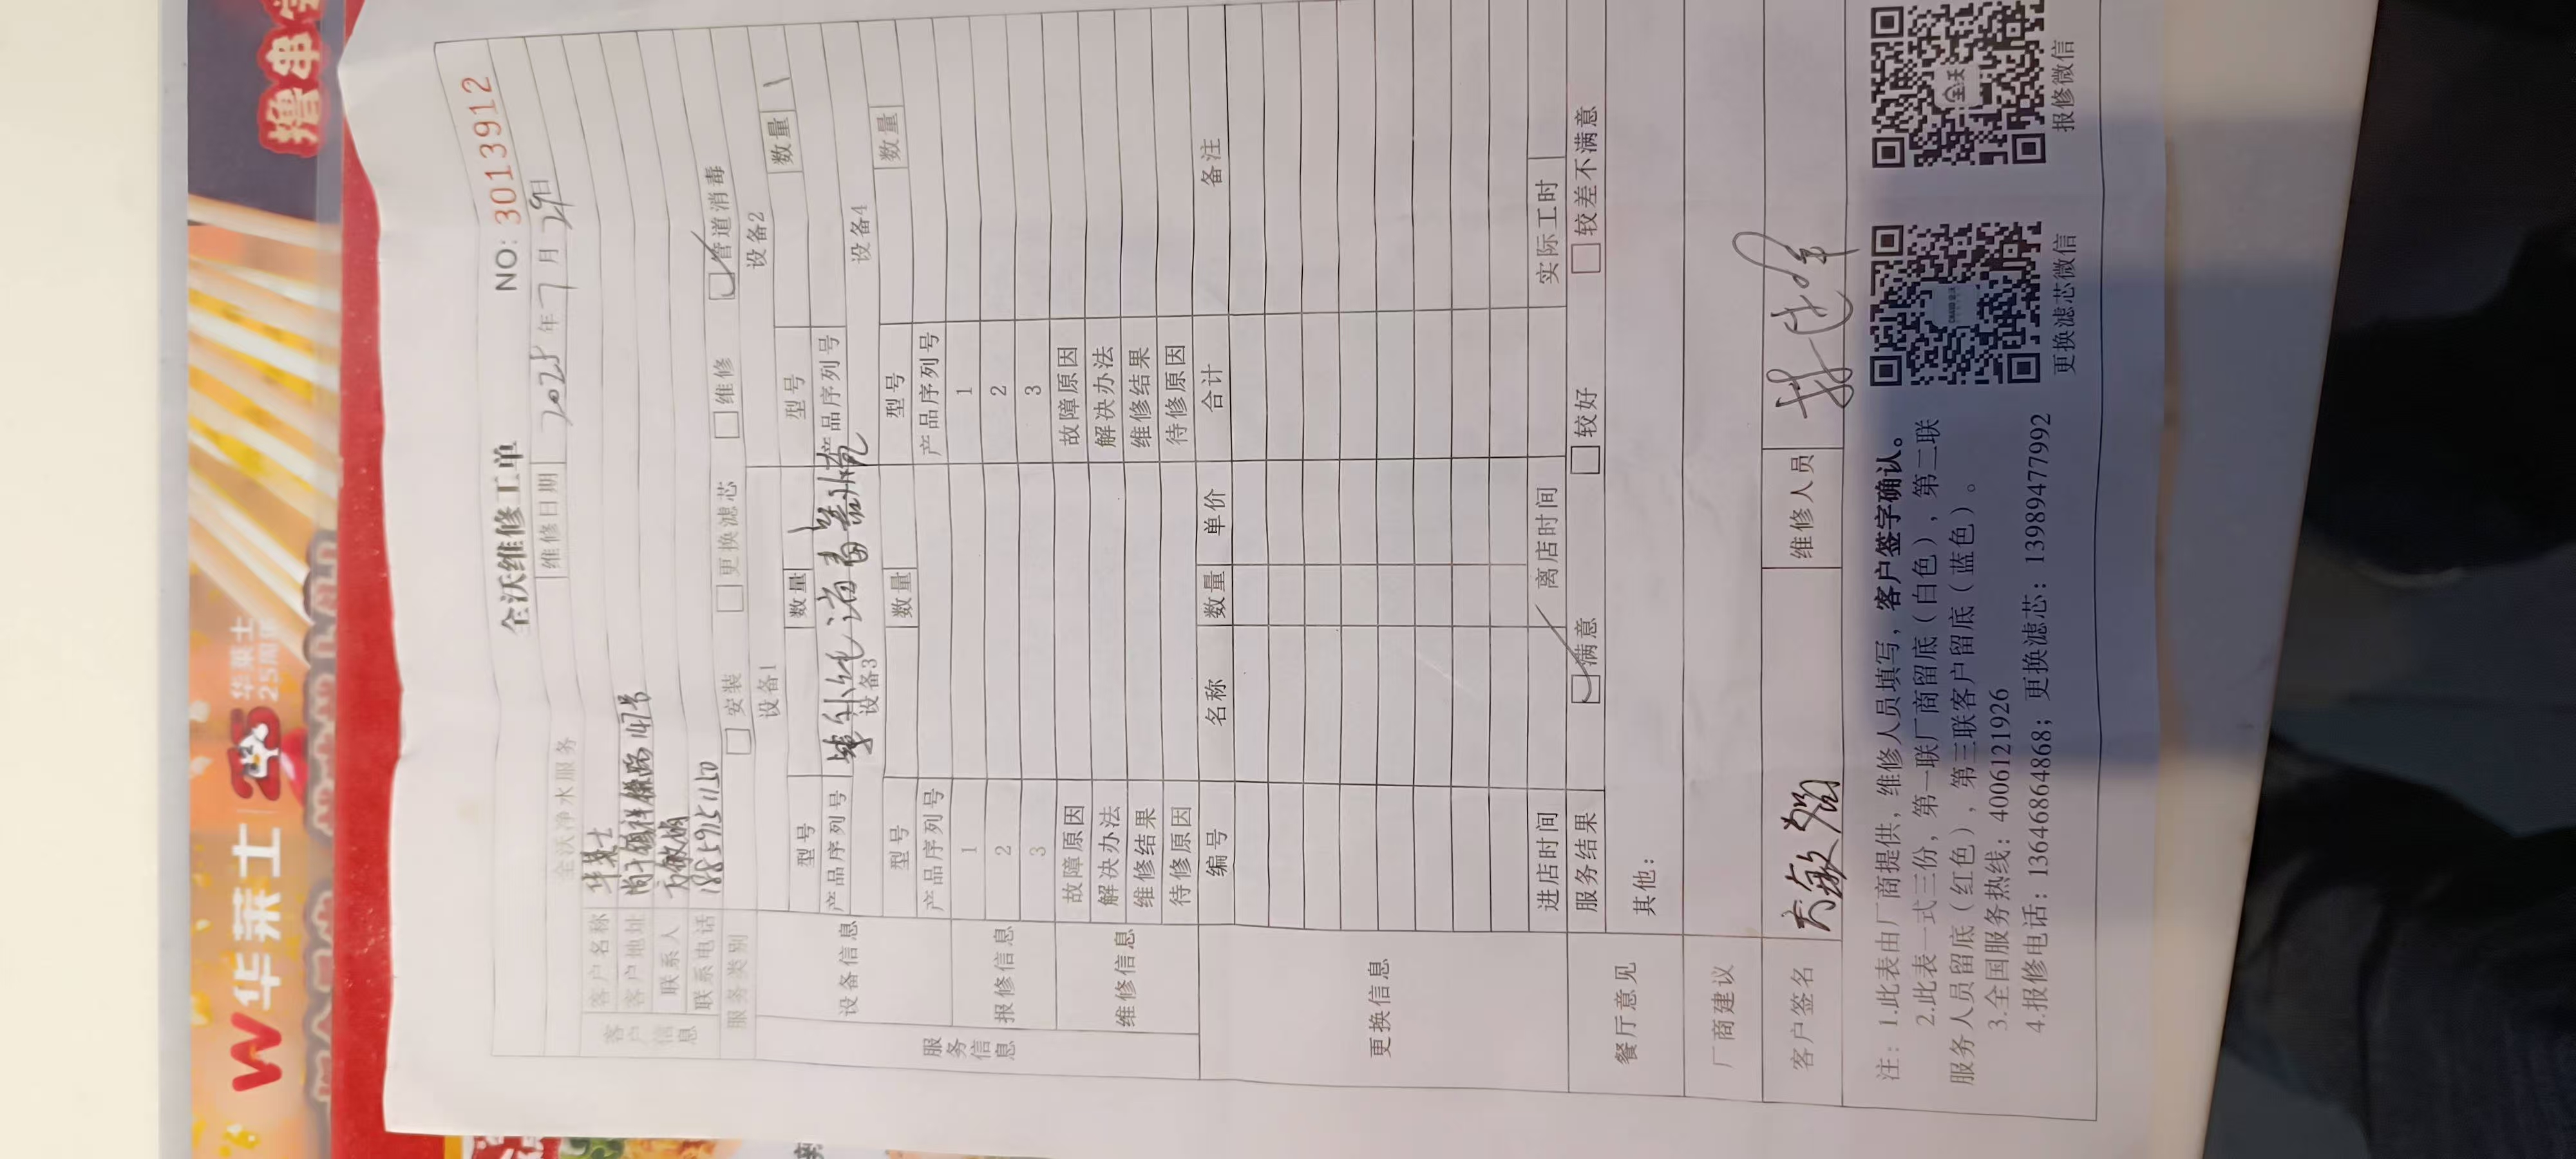 W 华莱士
华莱士
25周年
全沃维修工单
NO: 30139912
全沃净水服务
维修日期 2025年7月29日
客户信息
客户名称 华莱士
客户地址 147号
联系人 方敏娟
联系电话 18859751150
服务类别 安装 更换滤芯 维修 管道消毒
服务信息
设备信息
设备1 设备2
型号 数量 1 型号 数量 1
产品序列号 产品序列号
设备3 设备4
型号 数量 型号 数量
产品序列号 产品序列号
报修信息
1 1
2 2
3 3
维修信息
故障原因 故障原因
解决办法 解决办法
维修结果 维修结果
待修原因 待修原因
更换信息
编号 名称 数量 单价 合计 备注
进店时间 离店时间 实际工时
餐厅意见
服务结果 满意 较好 较差不满意
其他:
厂商建议
客户签名 方敏娟 维修人员
注: 1.此表由厂商提供, 维修人员填写, 客户签字确认。
2.此表一式三份, 第一联厂商留底(白色), 第二联
服务人员留底(红色), 第三联客户留底(蓝色)。
3.全国服务热线: 4006121926
4.报修电话: 13646864868; 更换滤芯: 13989477992
更换滤芯微信 报修微信